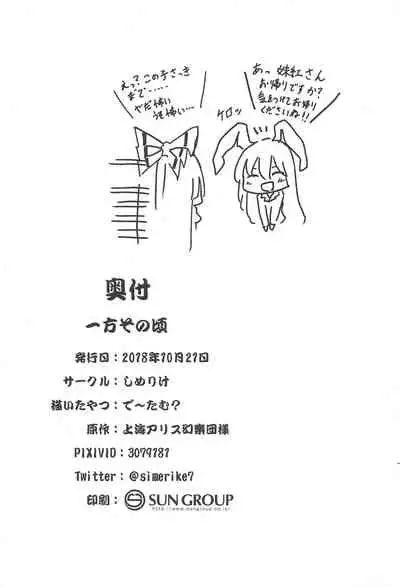 あっ 妹紅さん
お帰りですか?
気をつけてお帰り
くださいね!!
ケロッ
えっ?この子さっき
まで……
やだ怖い
奥付
一方その頃
発行日:2018年10月27日
サークル:しめりけ
描いたやつ:で〜たむ?
原作:上海アリス幻樂団様
PIXIVID:3079787
Twitter:@simerike7
印刷:SUN GROUP
http://www.sungroup.co.jp/